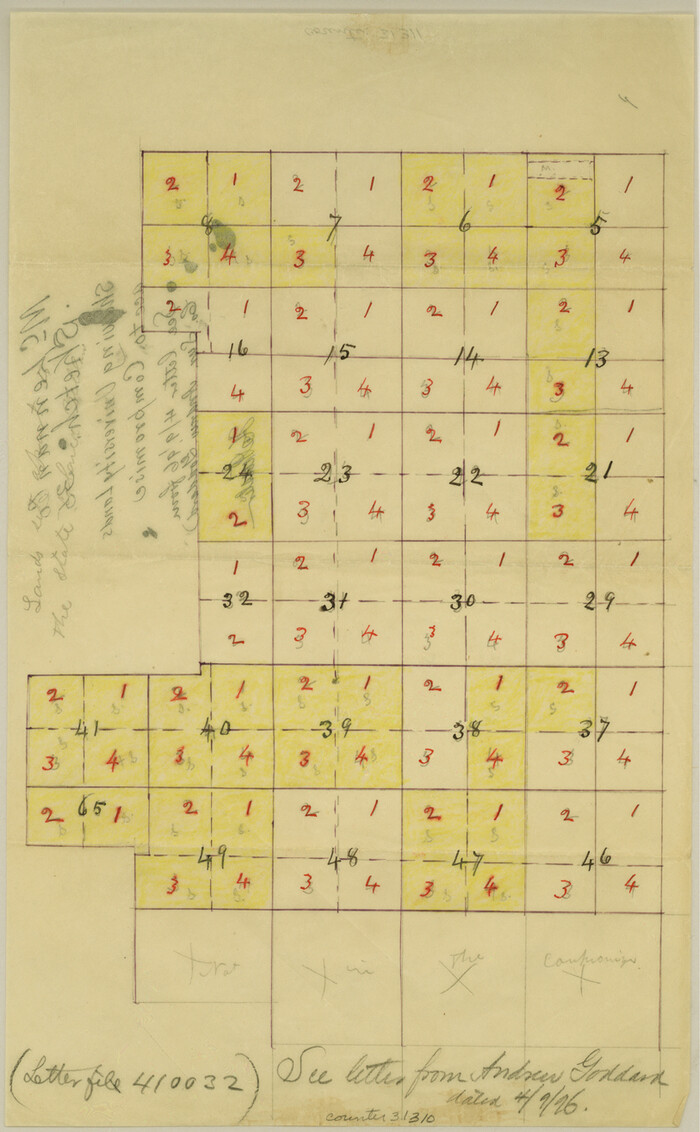 2 1 2 1 2 1 M 2 1
8 7 6 5
3 4 3 4 3 4 3 4
2 1 2 1 2 1 2 1
16 15 14 13
4 3 4 3 4 3 4
1 2 1 2 1 2 1
24 23 22 21
2 3 4 3 4 3 4
1 2 1 2 1 2 1
32 31 30 29
2 3 4 3 4 3 4
2 1 2 1 2 1 2 1 2 1
41 40 39 38 37
3 4 3 4 3 4 3 4 3 4
2 65 1 2 1 2 1 2 1 2 1
49 48 47 46
3 4 3 4 3 4 3 4
Not in the Compromise
Sketch
Showing University Lands
Compromise
Lands
the State
(Letter file 410032)
See letter from Andrew Goddard
dated 4/9/96.
counter 31310